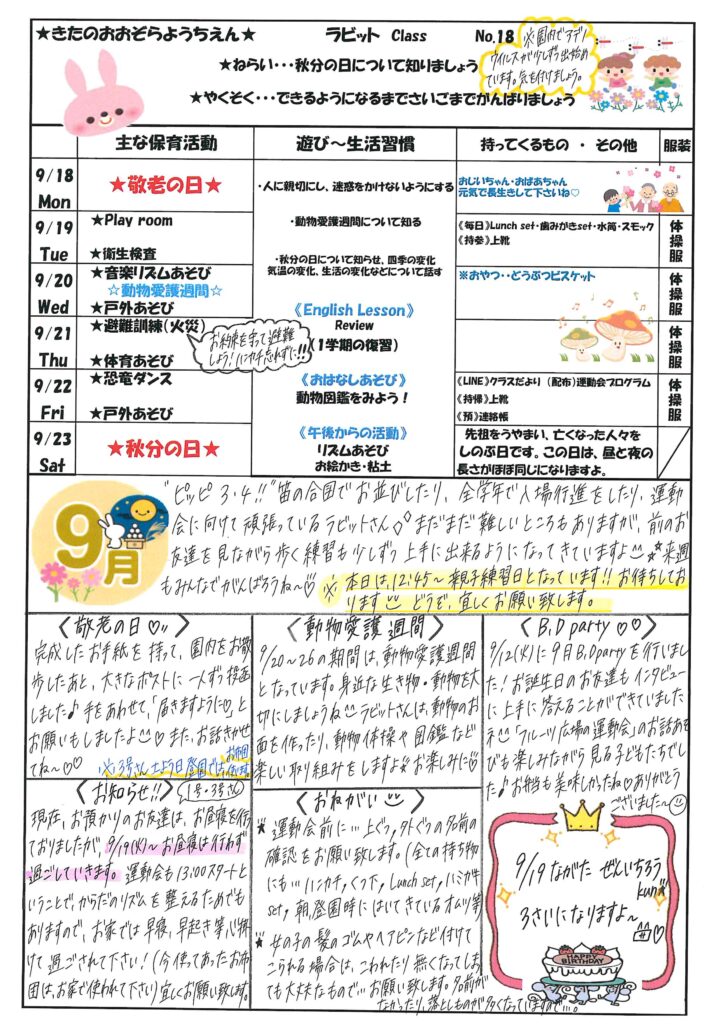 ★きたのおおぞらようちえん★
ラビット Class
No.18
※園内でアデノ
ウイルスが少しずつ出始め
ています。気を付けましょう。
★ねらい・・・秋分の日について知りましょう
★やくそく・・・できるようになるまでさいごまでがんばりましょう
主な保育活動
遊び～生活習慣
持ってくるもの ・ その他
服装
9/18
Mon
★敬老の日★
・人に親切にし、迷惑をかけないようにする
おじいちゃん・おばあちゃん
元気で長生きして下さいね♡
9/19
Tue
★Play room
★衛生検査
・動物愛護週間について知る
・秋分の日について知らせ、四季の変化
気温の変化、生活の変化などについて話す
《毎日》Lunch set・歯みがきset・水筒・スモック
《持参》上靴
体操服
9/20
Wed
★音楽リズムあそび
☆動物愛護週間☆
★戸外あそび
《English Lesson》
Review
(1学期の復習)
※おやつ・・どうぶつビスケット
体操服
9/21
Thu
★避難訓練(火災)
★体育あそび
お約束を守って避難
しよう!ハンカチ忘れずに!!
体操服
9/22
Fri
★恐竜ダンス
★戸外あそび
《おはなしあそび》
動物図鑑をみよう!
《LINE》クラスだより (配布)運動会プログラム
《持帰》上靴
《預》連絡帳
体操服
9/23
Sat
★秋分の日★
《午後からの活動》
リズムあそび
お絵かき・粘土
先祖をうやまい、亡くなった人々を
しのぶ日です。この日は、昼と夜の
長さがほぼ同じになりますよ。
9月
"ピッピ 3・4!!" 笛の合図でお並びしたり、全学年で入場行進をしたり、運動
会に向けて頑張っているラビットさん まだまだ難しいところもありますが、前のお
友達を見ながら歩く練習も少しずつ上手に出来るようになってきていますよ 来週
もみんなでがんばろうね～♡ ※本日は、12:45～親子練習日となっています!! お待ちしてお
ります どうぞ、宜しくお願い致します。
〈敬老の日♡〉
完成したお手紙を持って、園内をお散
歩したあと、大きなポストに一人ずつ投函
しました♪手をあわせて、「届きますように♡」と
お願いもしましたよ♡また、お話きかせ
てね～♡♡
〈動物愛護週間〉
9/20～26の期間は、動物愛護週間
となっています。身近な生き物・動物を大
切にしましょうね ラビットさんは、動物のお
面を作ったり、動物体操や図鑑など
楽しい取り組みをしますよ お楽しみに♡
〈B.D party ♡♡〉
9/12(火)に9月B.Dpartyを行いまし
た! お誕生日のお友達もインタビュー
に上手に答えることができていました
「フルーツ広場の運動会」のお話あそ
びも楽しみながら見る子どもたちでし
た♪お弁当も美味しかったね♡ありがとう
ございました～
〈お知らせ!!〉 1号・3号さん
現在、お預かりのお友達は、お昼寝を行っ
ておりましたが 9/19(火)～お昼寝は行わず
過ごしていきます。運動会も13:00スタートと
いうことで、からだのリズムを整えるためでも
ありますので、お家では早寝、早起き等心掛
けて過ごされて下さい!(今使ってあったお布
団は、お家で使われて下さい)宜しくお願い致します。
〈おねがい〉
★運動会前に…上ぐつ、外ぐつの名前の
確認をお願い致します。(全ての持ち物
にも…ハンカチ、くつ下、Lunch set、ハミガキ
set、朝、登園時にはいてきているオムツ等)
★女の子の髪のゴムやヘアピンなど付けて
こられる場合は、こわれたり無くなってしま
ても大丈夫なもので…お願い致します。名前が
なかったり、落としものが多くなっていますので…。
9/19 ながた ぜんいちろう
kun
3さいになりますよ～
HAPPY
BIRTHDAY